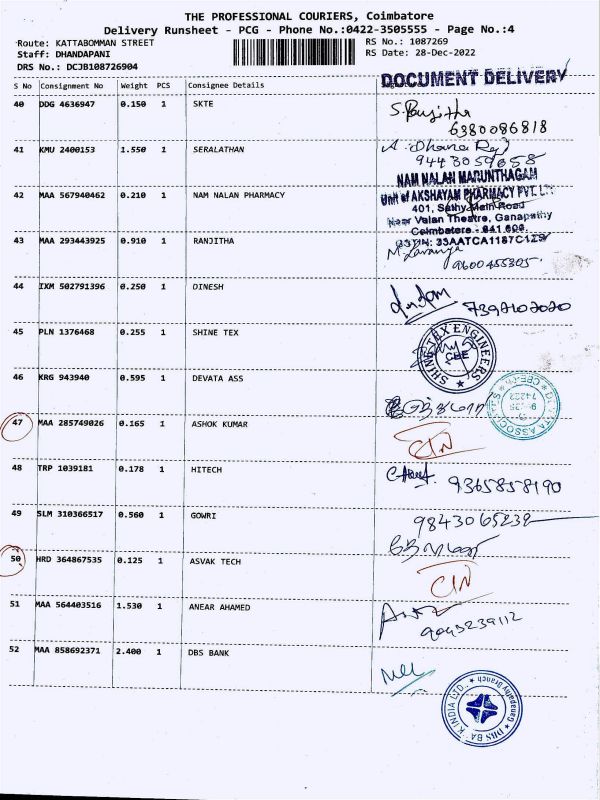 THE PROFESSIONAL COURIERS, Coimbatore
Delivery Runsheet - PCG - Phone No.:0422-3505555 - Page No.:4
Route: KATTABOMMAN STREET RS No.: 1087269
Staff: DHANDAPANI RS Date: 28-Dec-2022
DRS No.: DCJB108726904
DOCUMENT DELIVERY
S No Consignment No Weight PCS Consignee Details
40 DDG 4636947 0.150 1 SKTE
6380086818
41 KMU 2400153 1.550 1 SERALATHAN
A. Dhana Raj
9443059658
NAM NALAN MARUNTHAGAM
42 MAA 567940462 0.210 1 NAM NALAN PHARMACY
Unit of AKSHAYAM PHARMACY PVT. LTD
401, Sathy Main Road
Near Valan Theatre, Ganapathy
Coimbatore - 641 006.
43 MAA 293443925 0.910 1 RANJITHA
9600455305
44 IXM 502791396 0.250 1 DINESH
45 PLN 1376468 0.255 1 SHINE TEX
SHINE TEX ENGINEERS
CBE
46 KRG 943940 0.595 1 DEVATA ASS
47 MAA 285749026 0.165 1 ASHOK KUMAR
48 TRP 1039181 0.178 1 HITECH
9365858190
49 SLM 310366517 0.560 1 GOWRI
9843065239
50 HRD 364867535 0.125 1 ASVAK TECH
51 MAA 564403516 1.530 1 ANEAR AHAMED
52 MAA 858692371 2.400 1 DBS BANK
DBS BANK INDIA LTD.
Ganapathy Branch